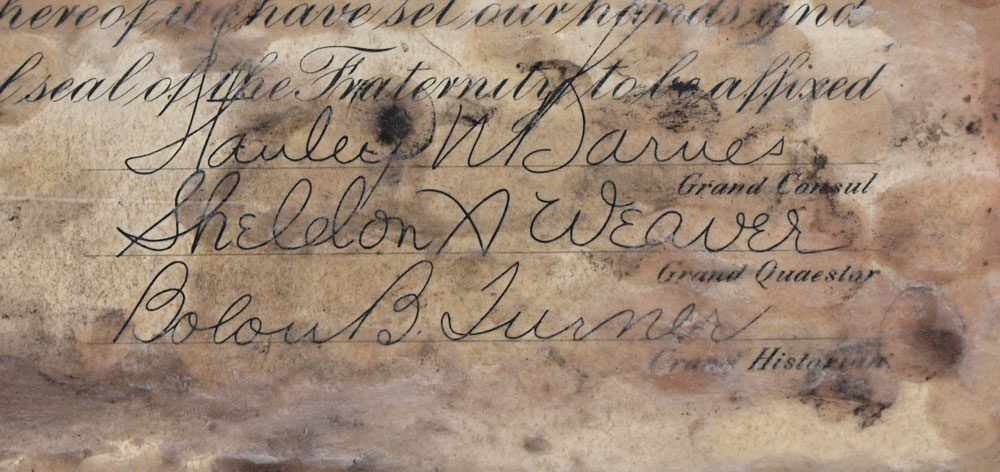 hereof we have set our hands and
l seal of the Fraternity to be affixed
Stanley W Barnes
Grand Consul
Sheldon A Weaver
Grand Quaestor
Bolon B. Turner
Grand Historian